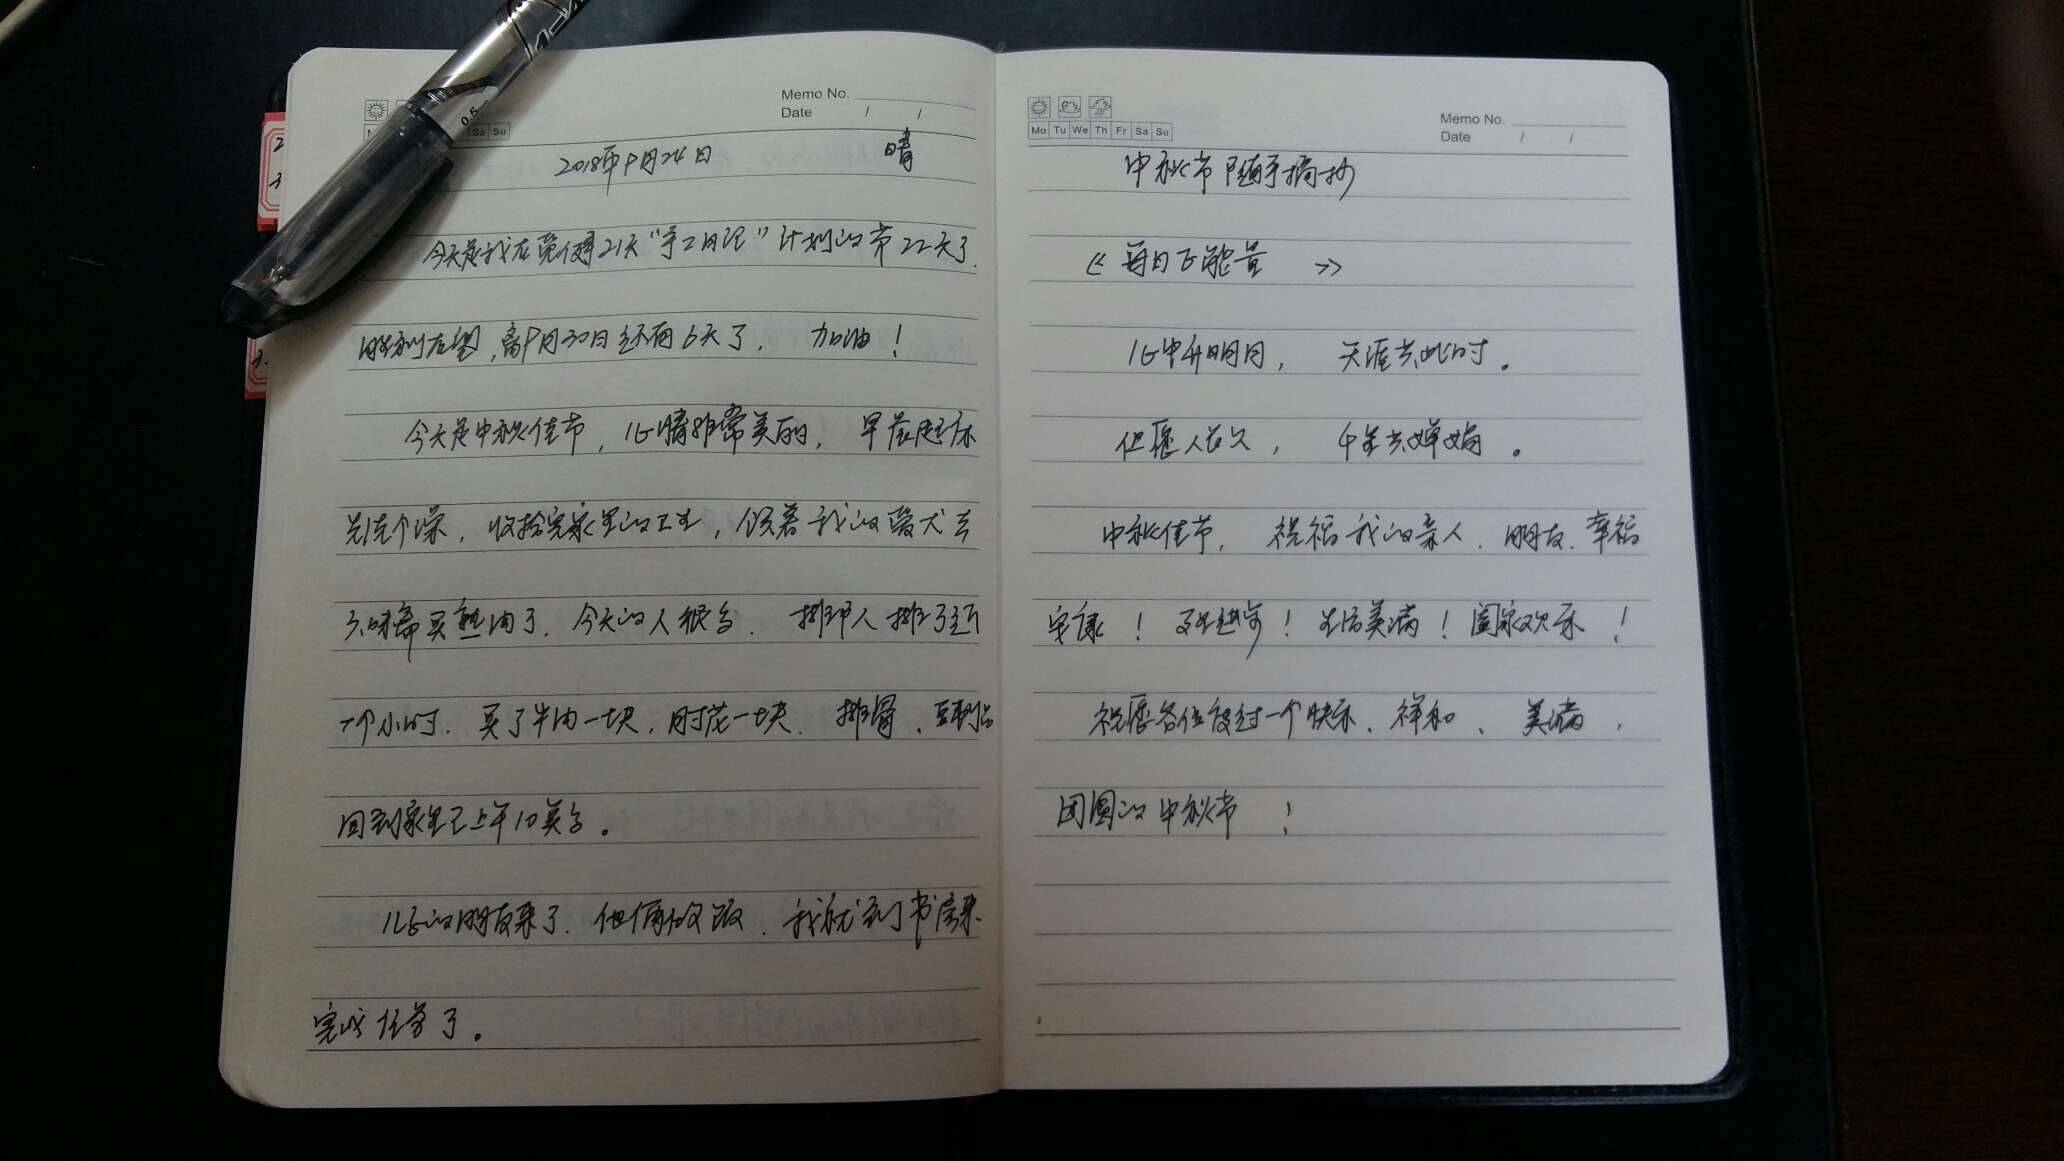 Memo No.
Date / /
Sa Su
0.5
2018年9月24日 晴
今天是我在 21天“手工日记”计划的第22天了.
胜利在望,离9月30日还有6天了. 加油!
今天是中秋佳节,心情非常美丽, 早晨起床
先洗个澡, 收拾完家里的卫生, 领着我的爱犬去
买熟肉了. 今天的人很多. 排队人排了近
一个小时. 买了牛肉一块, 肘花一块. 排骨.
回到家里已上午10点多。
儿子的朋友来了. 他俩 我就到书房来
完成任务了。
Mo Tu We Th Fr Sa Su
Memo No.
Date / /
中秋节随手摘抄
《每日正能量 》
心中升明月, 天涯共此时。
但愿人长久, 千里共婵娟。
中秋佳节, 祝福我的亲人. 朋友. 幸福
安康! 生活美满! 阖家欢乐!
祝愿各位 过一个快乐、祥和、美满,
团圆的中秋节!